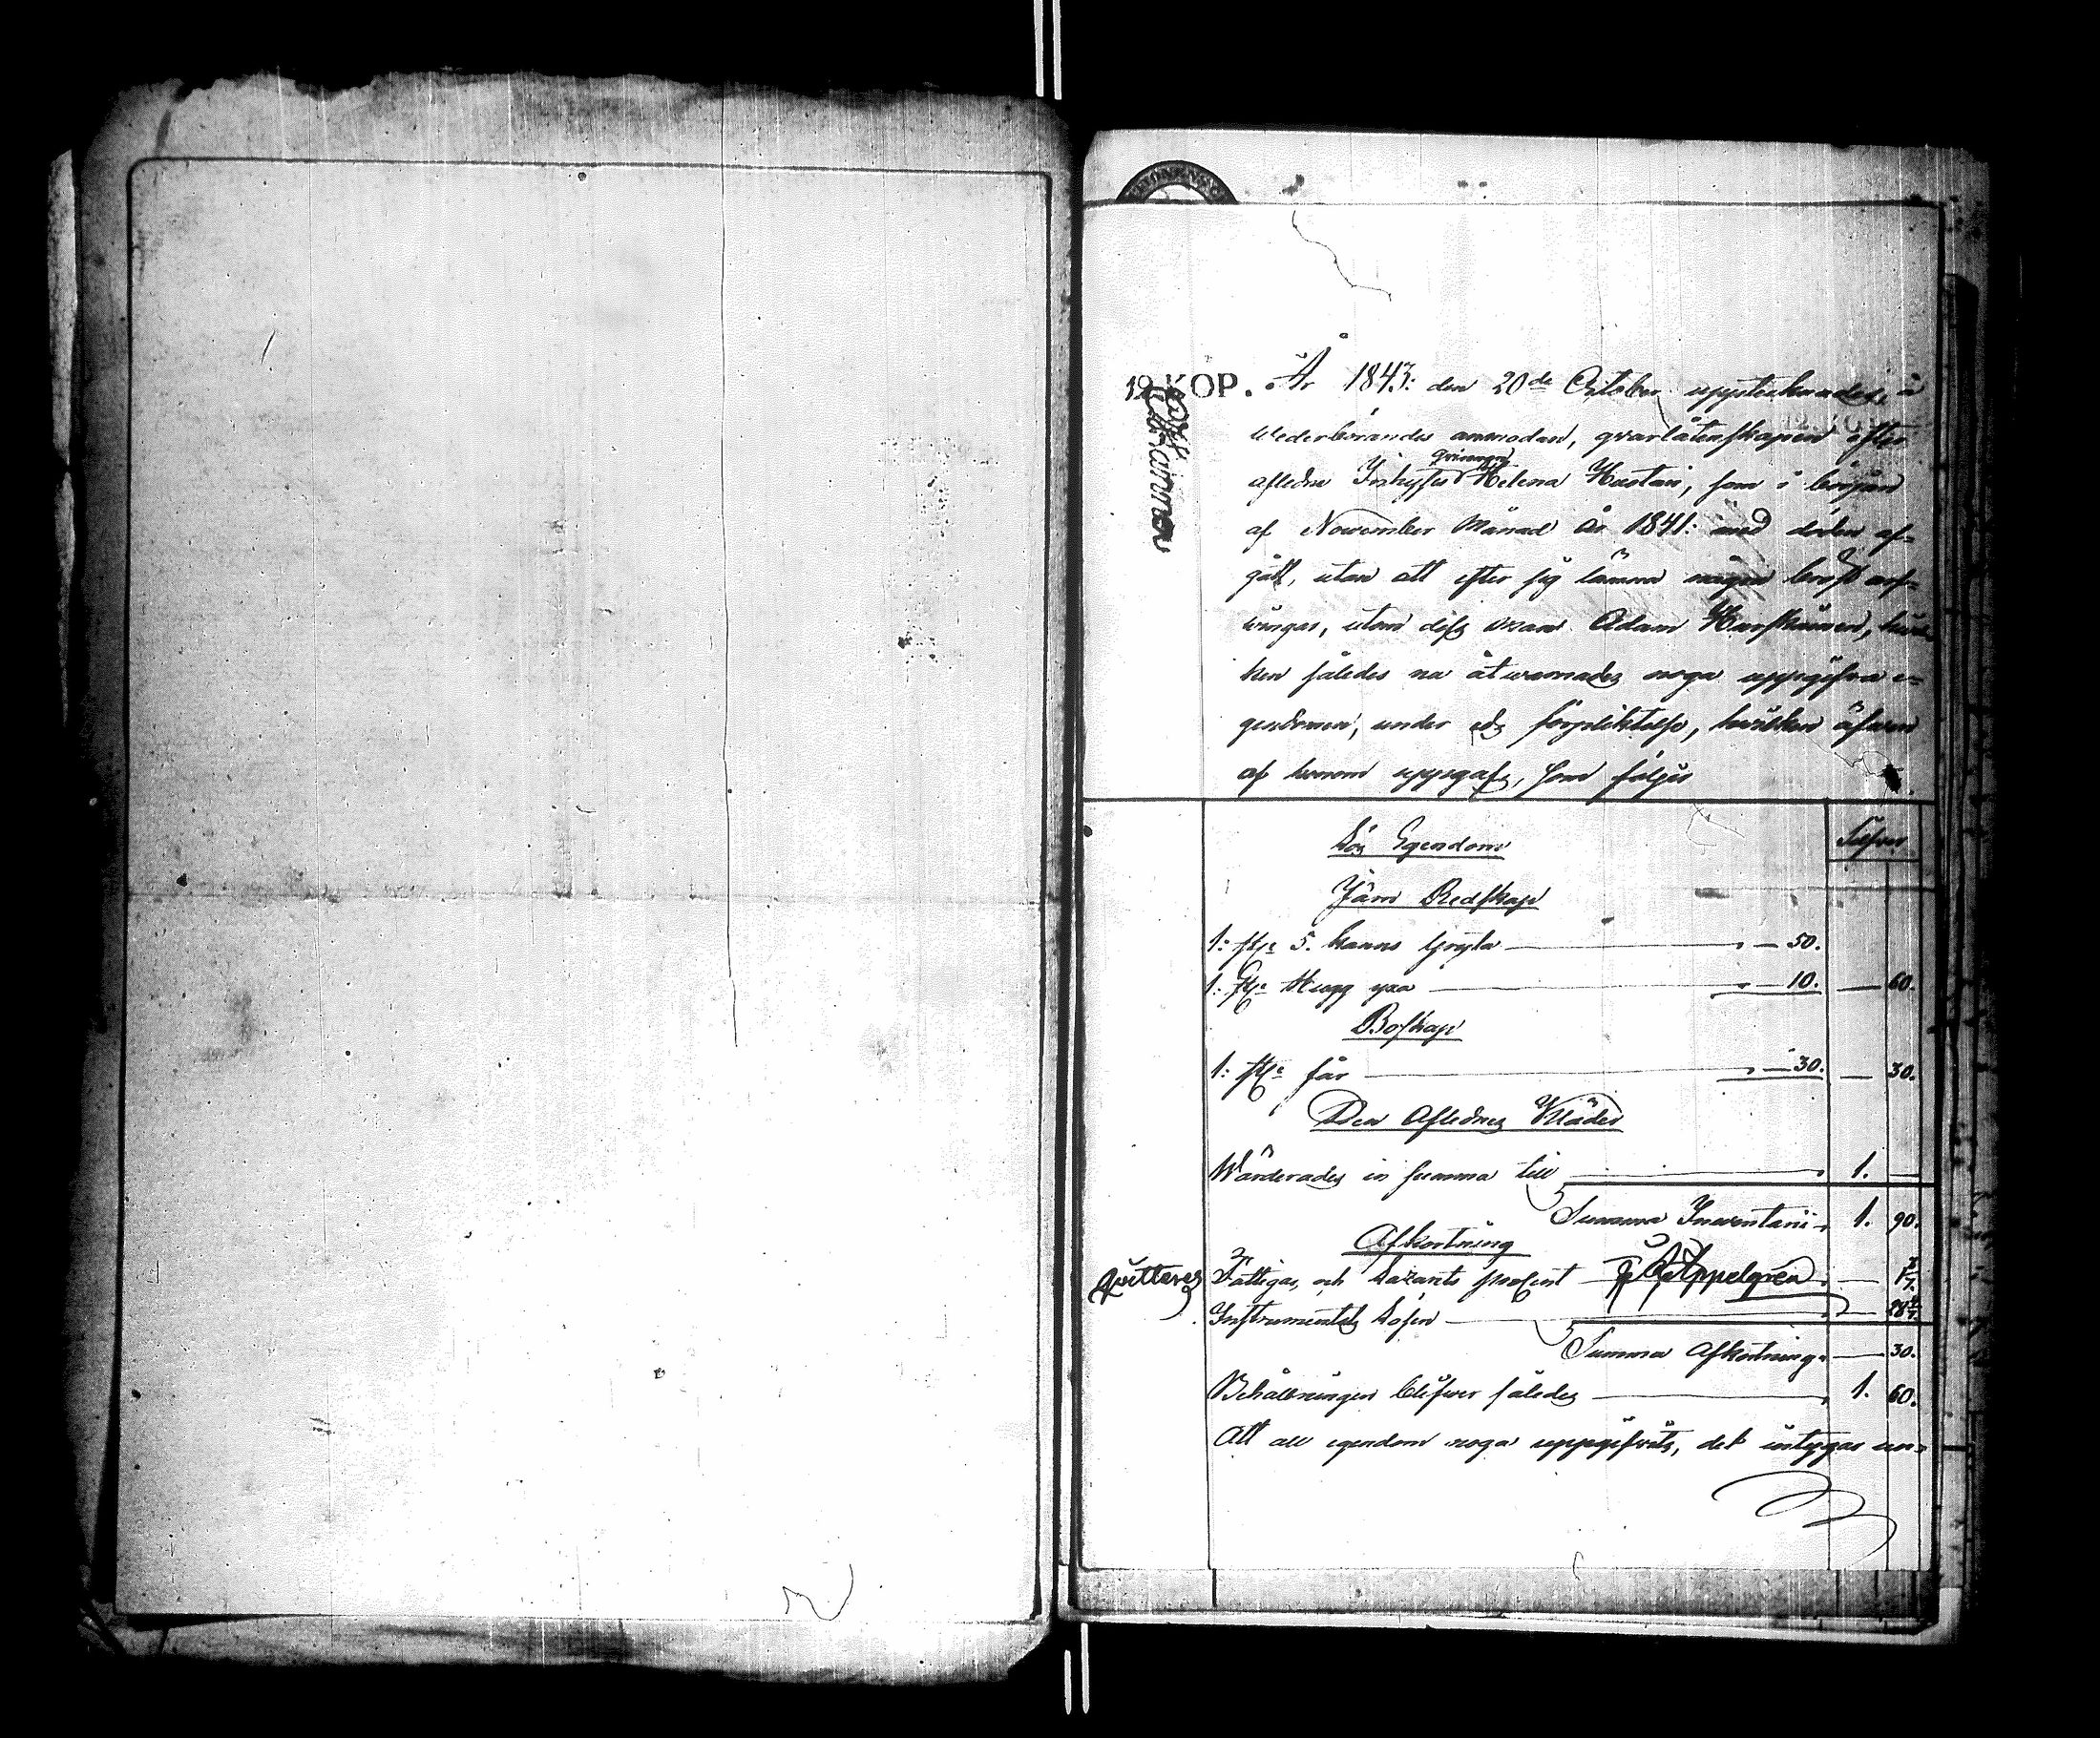 12 KOP. År 1843: den 20de October upptecknades, å
wederbörandes anmodan, qvarlåtenskapen efter
afledne Inhyses qvinnan Helena Hustari, som i början
af November Månad år 1841: med döden af-
gått, utan att efter sig lämna någon bröst arf-
wingar, utom dess man Adam
ken således nu åtwarnades noga uppgifwa e-
gendomen, under eds förpliktelse, hwilken äfwen
af honom uppgafs, som följer
Lös Egendom
Silfver
Järn Redskap
1: st. 5. kanns gryta — 50.
1: st. Hugg yxa — 10. — 60.
Boskap
1: st. får — 30. — 30.
Den Aflednes Kläder
Wärderades in summa till — 1. —
Summa Inventarii 1. 90.
Afkortning
Qvitteres Fattigas, och procent Appelgren —
Instrumentets lösen — 28 4/7.
Summa Afkortning — 30.
Behållningen blifwer således — 1. 60.
Att all egendom noga uppgifwits, det intygas un-